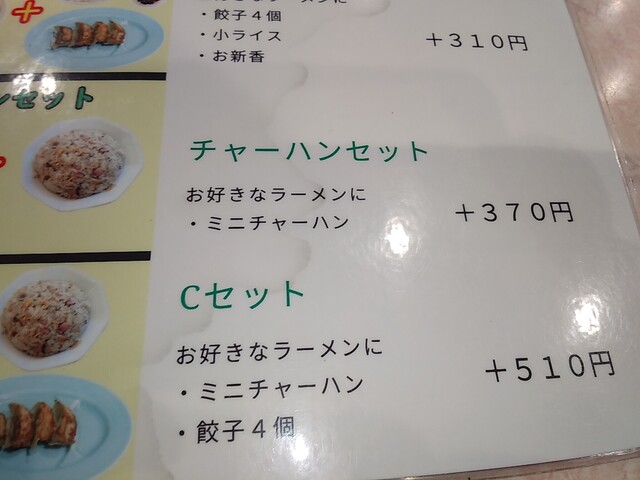 ・餃子４個
・小ライス
・お新香
＋３１０円
ンセット
チャーハンセット
お好きなラーメンに
・ミニチャーハン
＋３７０円
Cセット
お好きなラーメンに
・ミニチャーハン
・餃子４個
＋５１０円